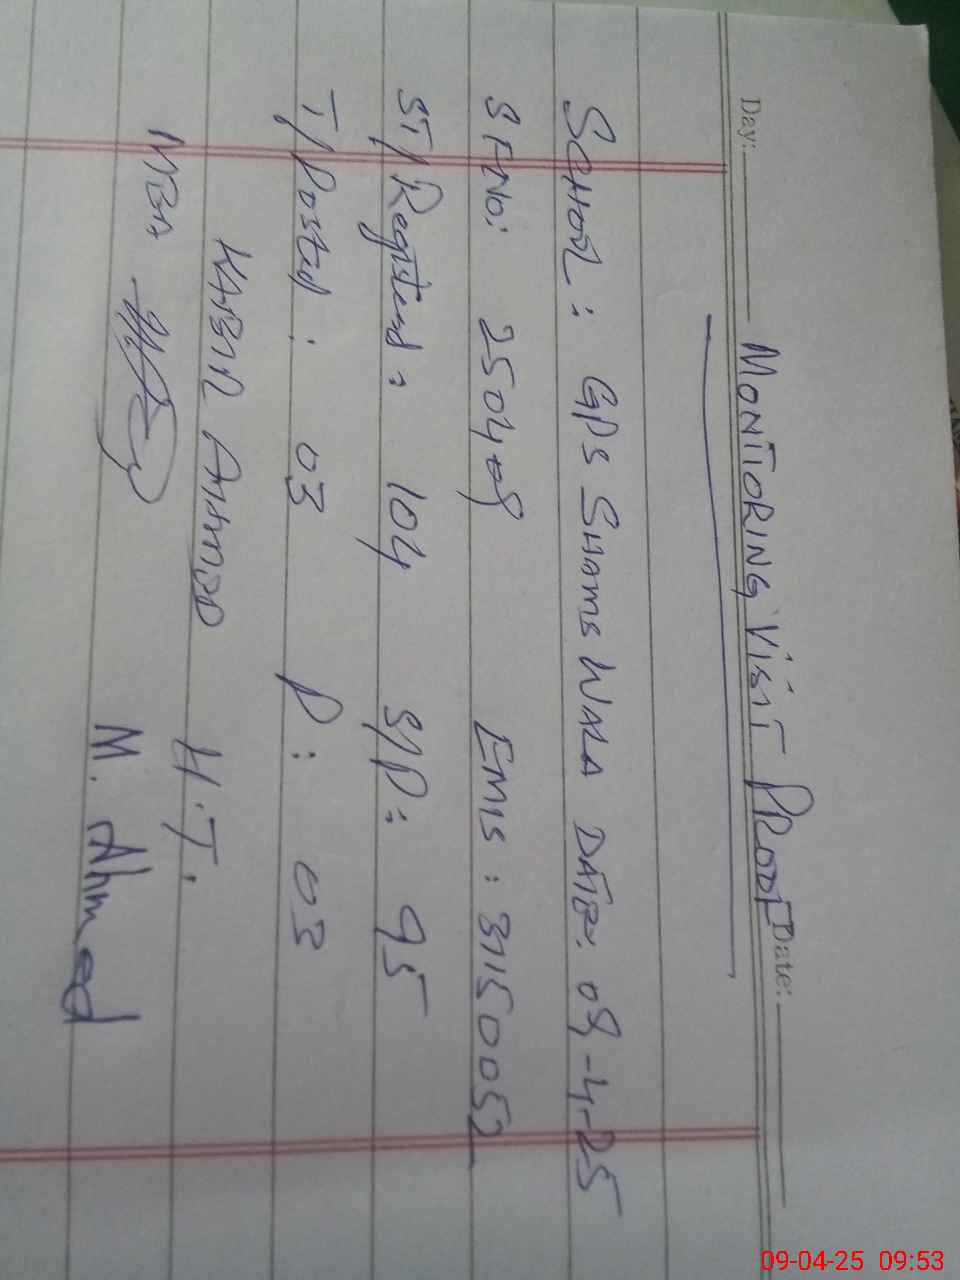 Day: Date:
MONITORING VISIT PROOF
SCHOOL : GPS SHAMS WALA DATE: 09-4-25
SFNo: 25049 EMIS : 37150052
ST/Registerd : 104 S/P: 95
T/Posted : 03 P: 03
AHMAD H.T.
M. Ahmed
09-04-25 09:53